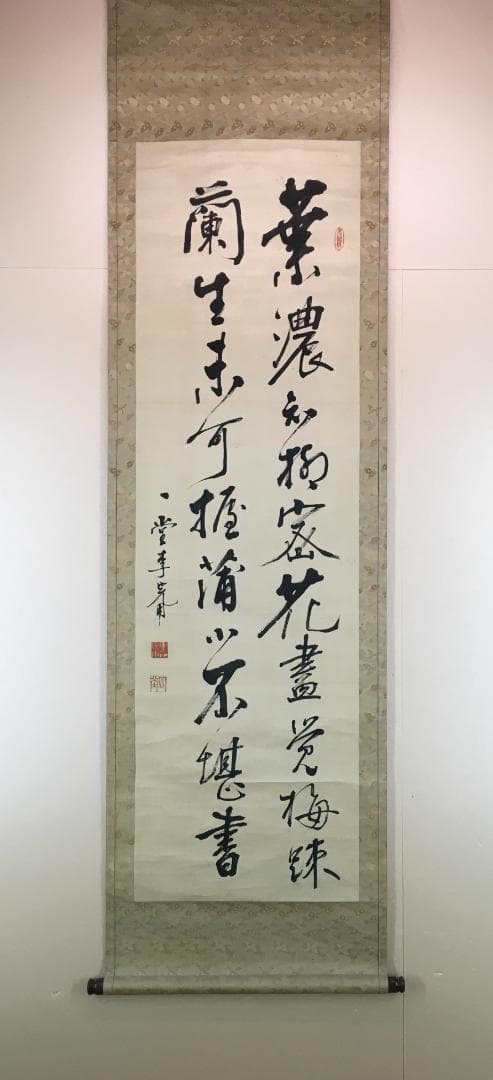 葉濃知柳密花盡覚梅踈
蘭生未可握蒲小不堪書
一堂李